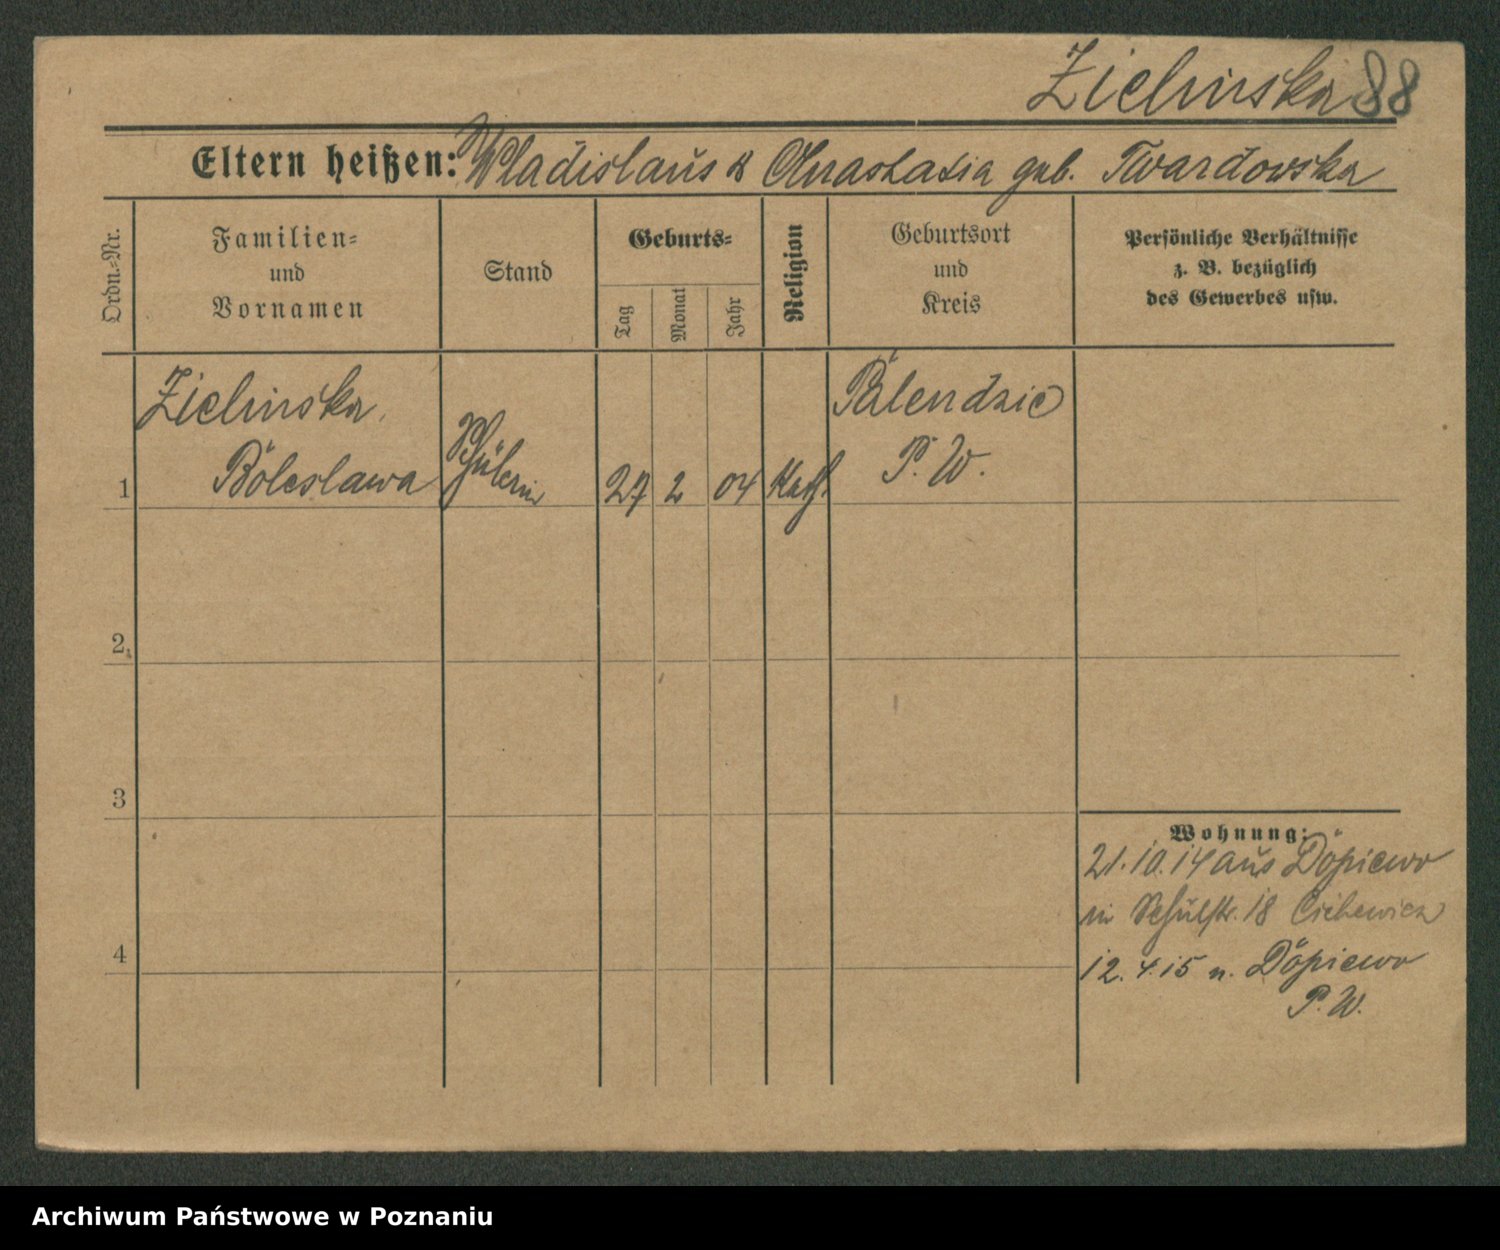 Zielinska 88
Eltern heißen: Wladislaus & Anastasia geb. Twardowska
Ordn.-Nr.
Familien-
und
Vornamen
Stand
Geburts-
Tag
Monat
Jahr
Religion
Geburtsort
und
Kreis
Persönliche Verhältnisse
z. B. bezüglich
des Gewerbes usw.
Zielinska
1 Boleslawa Schülerin 27 2 04 Kath. Palendzie
P. W.
2.
3
4
Wohnung:
21.10.14 aus Dopiewo
in Schulstr. 18
12.4.15 n. Dopiewo
P. W.
Archiwum Państwowe w Poznaniu